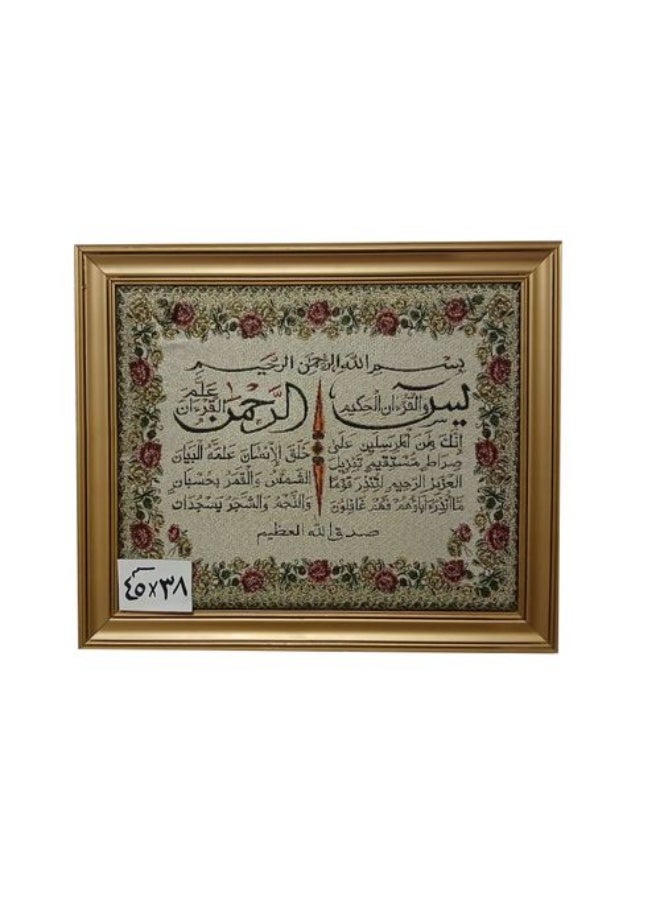 بسم الله الرحمن الرحيم
يس والقرءان الحكيم
إنك من المرسلين على
صراط مستقيم تنزيل
العزيز الرحيم لتنذر قوما
ما أنذر ءاباؤهم فهم غافلون
الرحمن علم القرءان
خلق الإنسان علمه البيان
الشمس والقمر بحسبان
والنجم والشجر يسجدان
صدق الله العظيم
٤٥x٣٨ سم